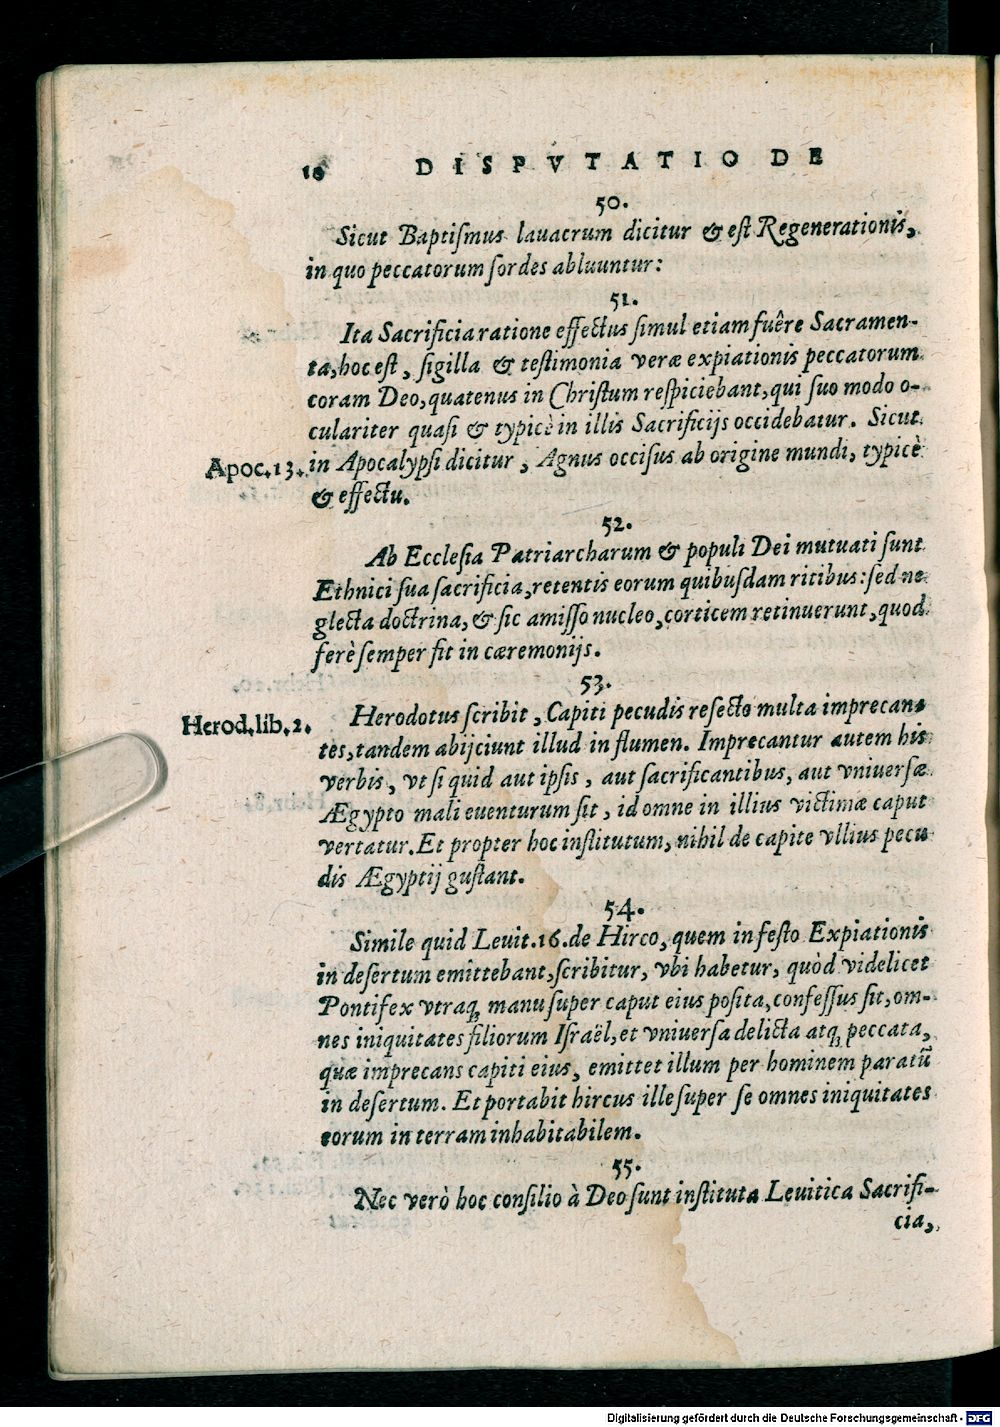 10 DISPVTATIO DE
50.
Sicut Baptiſmus lauacrum dicitur & eſt Regenerationis,
in quo peccatorum ſordes abluuntur:
51.
Ita Sacrificia ratione effectus ſimul etiam fuêre Sacramen-
ta, hoc eſt, ſigilla & teſtimonia veræ expiationis peccatorum
coram Deo, quatenus in Chriſtum reſpiciebant, qui ſuo modo o-
culariter quaſi & typicè in illis Sacrificijs occidebatur. Sicut
Apoc. 13. in Apocalypſi dicitur, Agnus occiſus ab origine mundi, typicè
& effectu.
52.
Ab Eccleſia Patriarcharum & populi Dei mutuati ſunt
Ethnici ſua ſacrificia, retentis eorum quibuſdam ritibus: ſed ne
glecta doctrina, & ſic amiſſo nucleo, corticem retinuerunt, quod
ferè ſemper fit in cæremonijs.
53.
Herod. lib. 2. Herodotus ſcribit, Capiti pecudis reſecto multa imprecan
tes, tandem abijciunt illud in flumen. Imprecantur autem his
verbis, vt ſi quid aut ipſis, aut ſacrificantibus, aut vniuerſæ
Ægypto mali euenturum ſit, id omne in illius victimæ caput
vertatur. Et propter hoc inſtitutum, nihil de capite vllius pecu
dis Ægyptij guſtant.
54.
Simile quid Leuit. 16. de Hirco, quem in feſto Expiationis
in deſertum emittebant, ſcribitur, vbi habetur, quòd videlicet
Pontifex vtraq; manu ſuper caput eius poſita, confeſſus ſit, om-
nes iniquitates filiorum Iſraël, et vniuerſa delicta atq; peccata,
quæ imprecans capiti eius, emittet illum per hominem paratũ
in deſertum. Et portabit hircus ille ſuper ſe omnes iniquitates
eorum in terram inhabitabilem.
55.
Nec verò hoc conſilio à Deo ſunt inſtituta Leuitica Sacrifi-
cia,
Digitalisierung gefördert durch die Deutsche Forschungsgemeinschaft - DFG